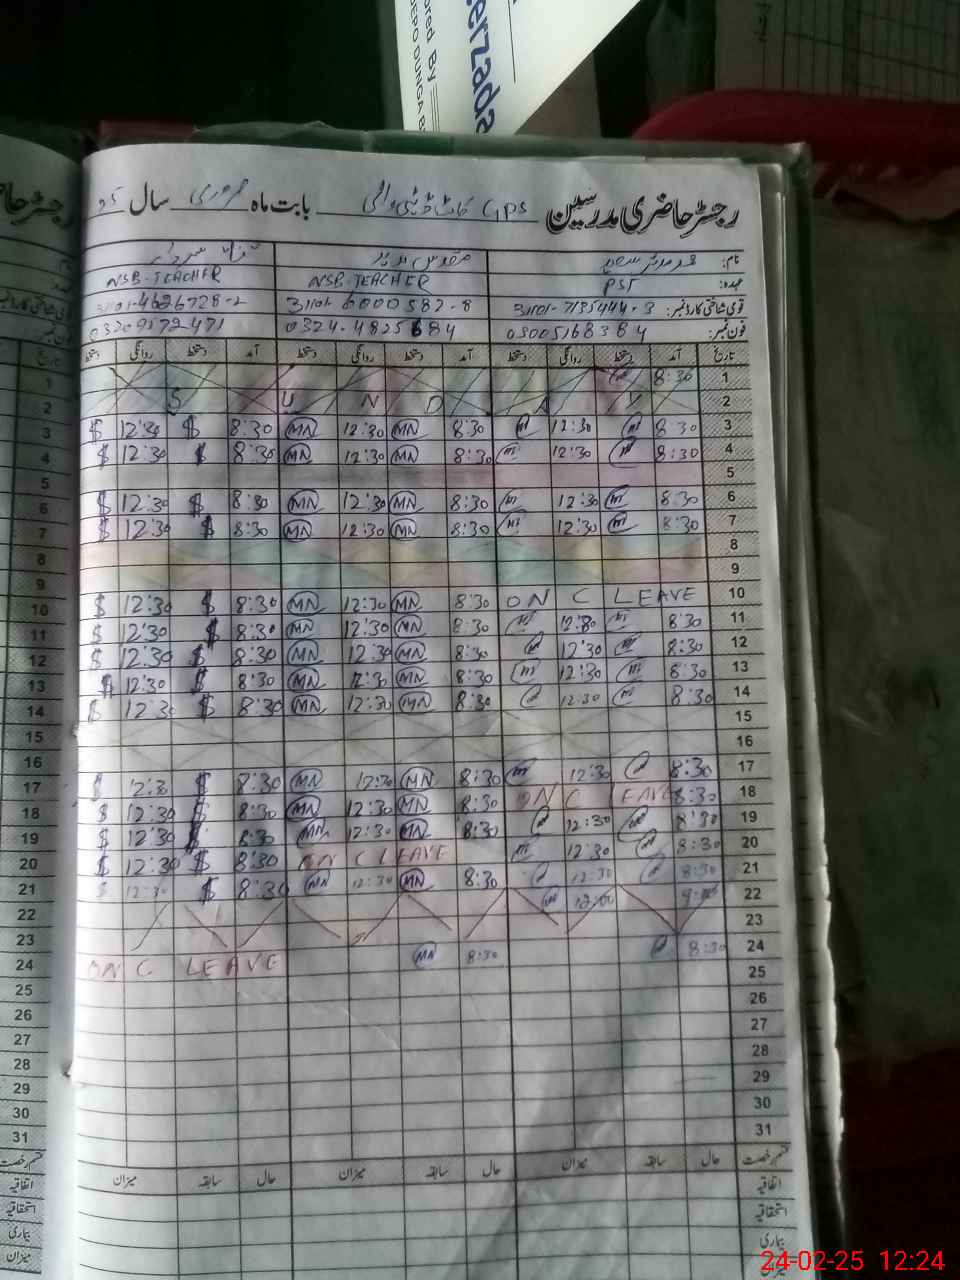 erzada
ored By
DEPO DUNGA B
رجسٹر حاضری مدرسین GPS بابت ماہ فروری سال 25
نام:
عہدہ: PST NSB.TEACHER NSB.TEACHER
قومی شناختی کارڈ نمبر: 31101-7135444-3 31101-6000582-8 31101-4626728-2
فون نمبر: 03005168384 0324-4825684 03209572471
تاریخ آمد دستخط روانگی دستخط آمد دستخط روانگی دستخط آمد دستخط روانگی دستخط
1 8:30
2 S U N D A Y
3 8:30 12:30 8:30 MN 12:30 MN 8:30 $ 12:30 $
4 8:30 12:30 8:30 MN 12:30 MN 8:30 $ 12:30 $
5
6 8:30 12:30 8:30 MN 12:30 MN 8:30 $ 12:30 $
7 8:30 12:30 8:30 MN 12:30 MN 8:30 $ 12:30 $
8
9
10 ON C LEAVE 8:30 MN 12:30 MN 8:30 $ 12:30 $
11 8:30 12:30 8:30 MN 12:30 MN 8:30 $ 12:30 $
12 8:30 12:30 8:30 MN 12:30 MN 8:30 $ 12:30 $
13 8:30 12:30 8:30 MN 12:30 MN 8:30 $ 12:30 $
14 8:30 12:30 8:30 MN 12:30 MN 8:30 $ 12:30 $
15
16
17 8:30 12:30 8:30 MN 12:30 MN 8:30 $ 12:30 $
18 ON C LEAVE 8:30 8:30 MN 12:30 MN 8:30 $ 12:30 $
19 8:30 12:30 8:30 MN 12:30 MN 8:30 $ 12:30 $
20 8:30 12:30 ON C LEAVE 8:30 $ 12:30 $
21 8:30 12:30 8:30 MN 12:30 MN 8:30 $ 12:30 $
22 12:00
23
24 8:30 8:30 MN ON C LEAVE
25
26
27
28
29
30
31
قسم رخصت حال سابقہ میزان حال سابقہ میزان حال سابقہ میزان
اتفاقیہ
استحقاقیہ
بیماری
میزان
24-02-25 12:24